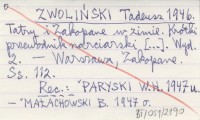 ZWOLIŃSKI Tadeusz 1946.
Tatry i Zakopane w zimie. Krótki
przewodnik narciarski [...]. Wyd.
2. — Warszawa, Zakopane.
Ss. 112.
Rec.: PARYSKI W.H. 1947 u.
— MAŁACHOWSKI B. 1947 o.